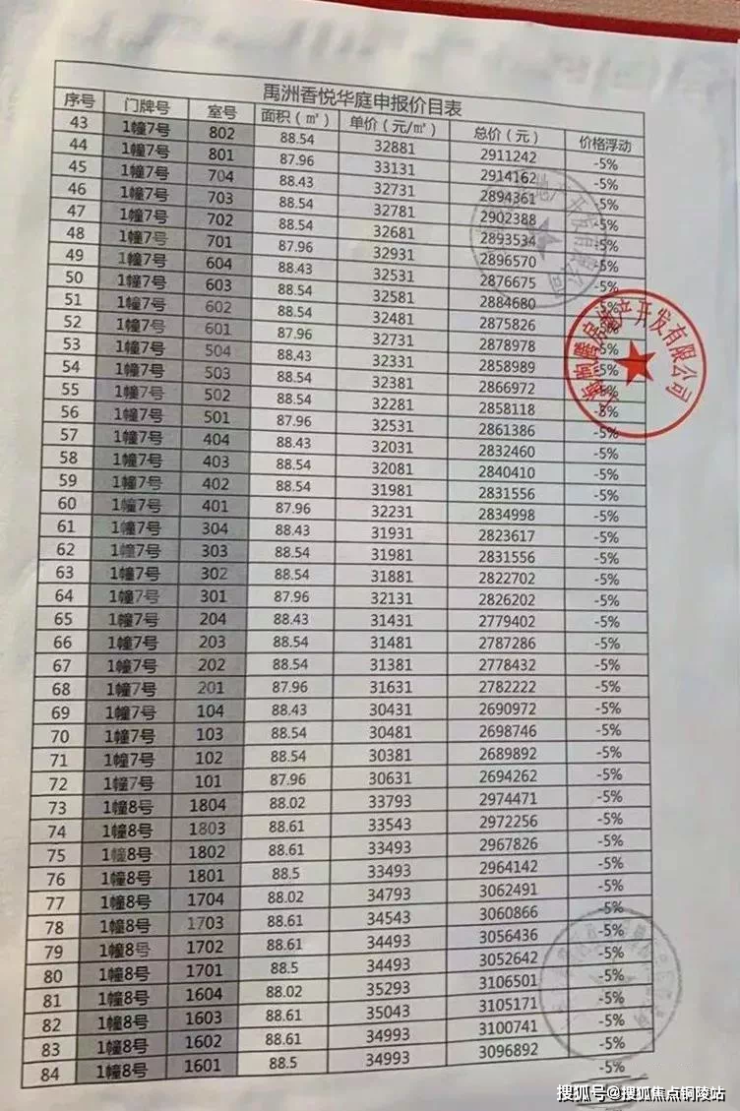 禹洲香悦华庭申报价目表
序号 门牌号 室号 面积（㎡） 单价（元/㎡） 总价（元） 价格浮动
43 1幢7号 802 88.54 32881 2911242 -5%
44 1幢7号 801 87.96 33131 2914162 -5%
45 1幢7号 704 88.43 32731 2894361 -5%
46 1幢7号 703 88.54 32781 2902388 -5%
47 1幢7号 702 88.54 32681 2893534 -5%
48 1幢7号 701 87.96 32931 2896570 -5%
49 1幢7号 604 88.43 32531 2876675 -5%
50 1幢7号 603 88.54 32581 2884680 -5%
51 1幢7号 602 88.54 32481 2875826 -5%
52 1幢7号 601 87.96 32731 2878978 -5%
53 1幢7号 504 88.43 32331 2858989 -5%
54 1幢7号 503 88.54 32381 2866972 -5%
55 1幢7号 502 88.54 32281 2858118 -5%
56 1幢7号 501 87.96 32531 2861386 -5%
57 1幢7号 404 88.43 32031 2832460 -5%
58 1幢7号 403 88.54 32081 2840410 -5%
59 1幢7号 402 88.54 31981 2831556 -5%
60 1幢7号 401 87.96 32231 2834998 -5%
61 1幢7号 304 88.43 31931 2823617 -5%
62 1幢7号 303 88.54 31981 2831556 -5%
63 1幢7号 302 88.54 31881 2822702 -5%
64 1幢7号 301 87.96 32131 2826202 -5%
65 1幢7号 204 88.43 31431 2779402 -5%
66 1幢7号 203 88.54 31481 2787286 -5%
67 1幢7号 202 88.54 31381 2778432 -5%
68 1幢7号 201 87.96 31631 2782222 -5%
69 1幢7号 104 88.43 30431 2690972 -5%
70 1幢7号 103 88.54 30481 2698746 -5%
71 1幢7号 102 88.54 30381 2689892 -5%
72 1幢7号 101 87.96 30631 2694262 -5%
73 1幢8号 1804 88.02 33793 2974471 -5%
74 1幢8号 1803 88.61 33543 2972256 -5%
75 1幢8号 1802 88.61 33493 2967826 -5%
76 1幢8号 1801 88.5 33493 2964142 -5%
77 1幢8号 1704 88.02 34793 3062491 -5%
78 1幢8号 1703 88.61 34543 3060866 -5%
79 1幢8号 1702 88.61 34493 3056436 -5%
80 1幢8号 1701 88.5 34493 3052642 -5%
81 1幢8号 1604 88.02 35293 3106501 -5%
82 1幢8号 1603 88.61 35043 3105171 -5%
83 1幢8号 1602 88.61 34993 3100741 -5%
84 1幢8号 1601 88.5 34993 3096892 -5%
房地产开发有限公司
搜狐号@搜狐焦点铜陵站